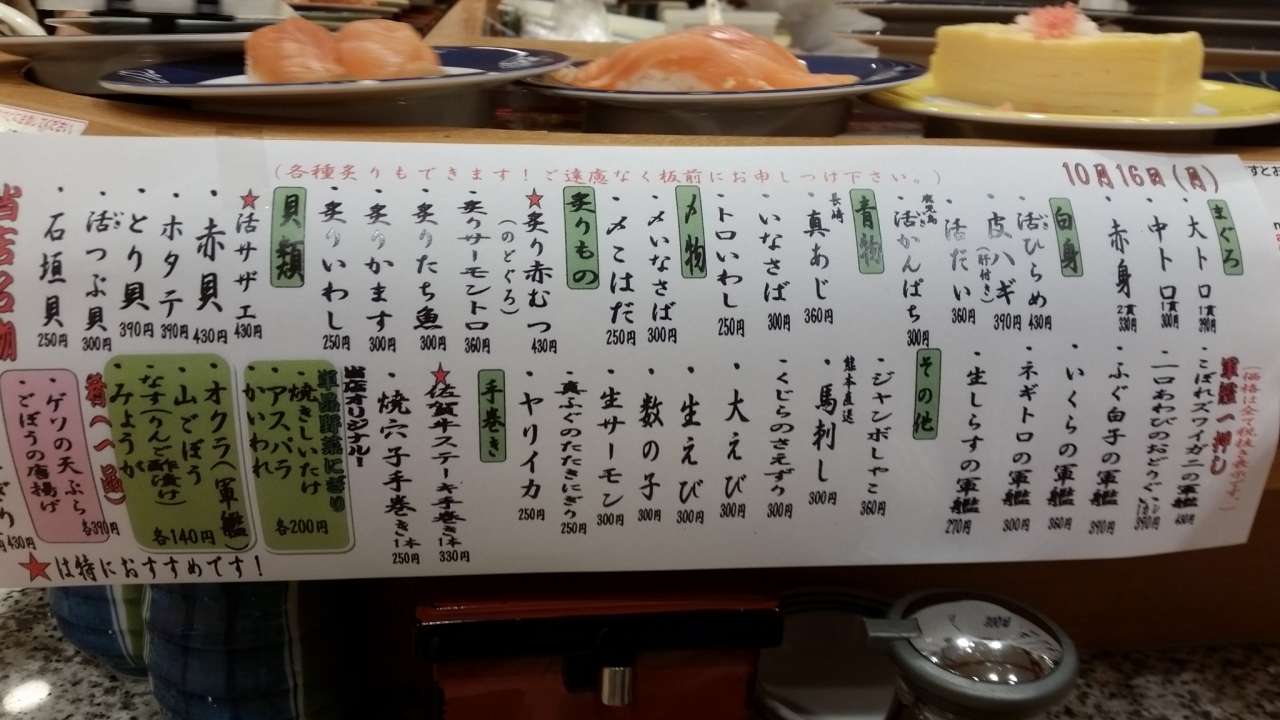 (各種炙りもできます！ご遠慮なく板前にお申しつけ下さい。)
10月16日(月)
まぐろ
・大トロ 1貫 390円
・中トロ 1貫 300円
・赤身 2貫 330円
白身
・活ひらめ 430円
・皮ハギ(肝付き) 390円
・活だい 360円
・鹿児島 活かんぱち 300円
青物
・長崎 真あじ 360円
・いなさば 300円
・トロいわし 250円
〆物
・〆いなさば 300円
・〆こはだ 250円
炙りもの
★炙り赤むつ(のどぐろ) 430円
・炙りサーモントロ 360円
・炙りたち魚 300円
・炙りかます 300円
・炙りいわし 250円
貝類
★活サザエ 430円
・赤貝 430円
・ホタテ 390円
・とり貝 390円
・活つぶ貝 300円
・石垣貝 250円
軍艦一押し
(価格は全て税抜き表示です。)
・こぼれズワイガニの軍艦 430円
・一口あわびのおどりぐい 390円
・ふぐ白子の軍艦 390円
・いくらの軍艦 360円
・ネギトロの軍艦 300円
・生しらすの軍艦 270円
その他
・ジャンボしゃこ 360円
・熊本直送 馬刺し 300円
・くじらのさえずり 300円
・大えび 300円
・生えび 300円
・数の子 300円
・生サーモン 300円
・真ふぐのたたきにぎり 250円
・ヤリイカ 250円
手巻き
★佐賀牛ステーキ手巻き1本 330円
・焼穴子手巻き1本 250円
当店オリジナル！
単品野菜にぎり
・焼きしいたけ
・アスパラ
・かいわれ
各200円
・オクラ(軍艦)
・山ごぼう
・なす(りんご酢漬け)
・みょうが
各140円
肴(一品)
・ゲソの天ぷら
・ごぼうの唐揚げ
各390円
430円
当店名物
★は特におすすめです！